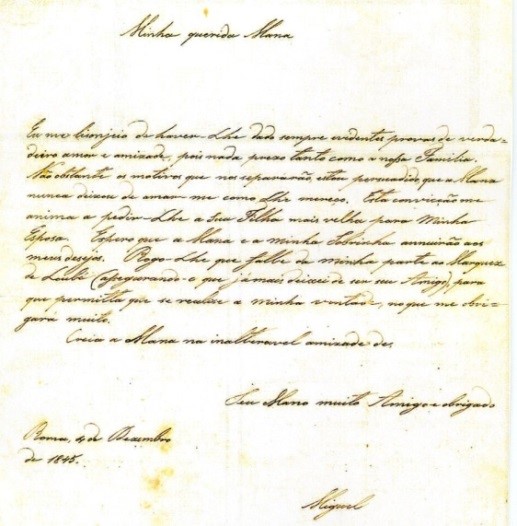 Minha querida Mana
Eu me lisonjeio de haver-Lhe dado sempre evidentes provas de verda-
deiro amor e amizade, pois nada prezo tanto como a nossa Familia.
Não obstante os motivos que nos separárão, estou persuadido que a Mana
nunca deixou de amar-me como Lhe mereço. Esta convicção me
anima a pedir-Lhe a Sua Filha mais velha para Minha
Esposa. Espero que a Mana e a minha Sobrinha annuirão aos
meus desejos. Rogo-Lhe que falle de minha parte ao Marquez
de Loulé (assegurando-o que jámais deixei de ser seu Amigo) para
que permitta que se realize a minha vontade, no que me obri-
gará muito.
Creia a Mana na inalteravel amizade de
Seu Mano muito Amigo e obrigado
Roma, 4 de Dezembro
de 1845.
Miguel